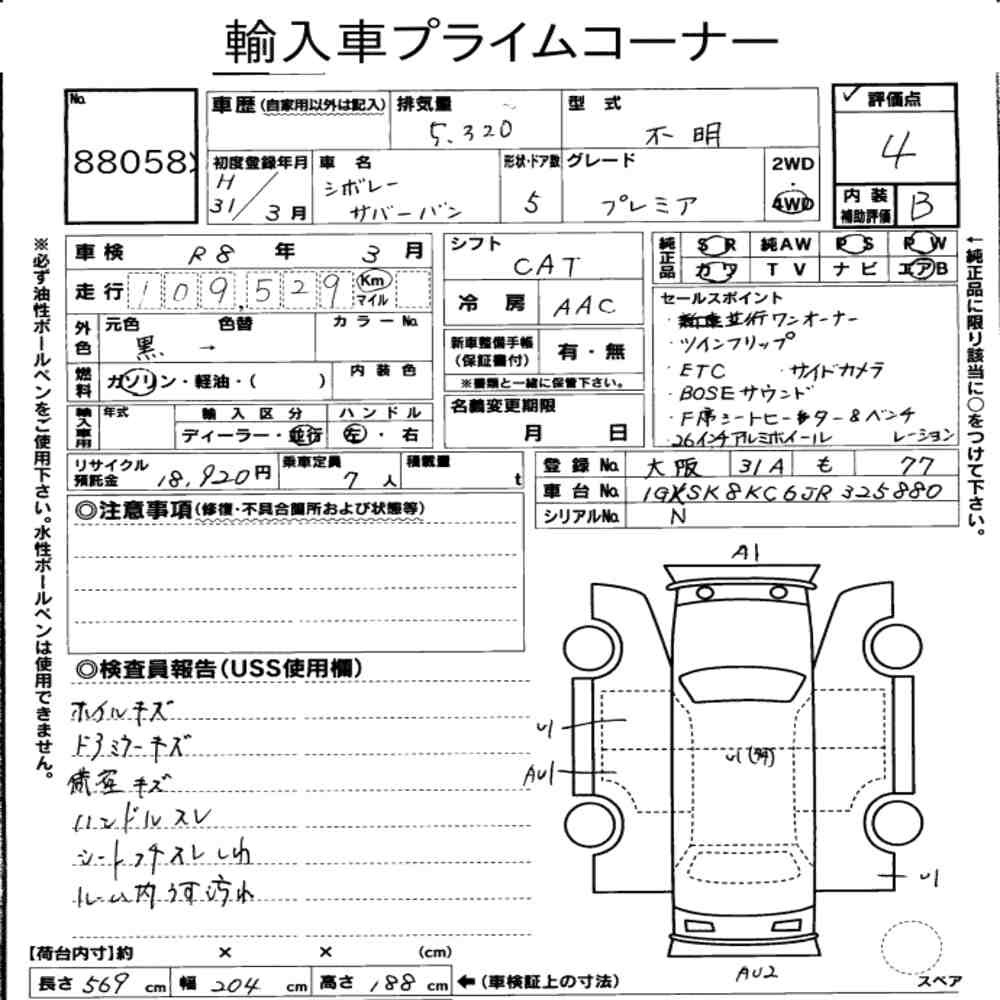 輸入車プライムコーナー
No.
88058
車歴(自家用以外は記入)
排気量
5.320
型式
不明
評価点
4
初度登録年月
H
31/3月
車名
シボレー
サバーバン
形状・ドア数
5
グレード
プレミア
2WD
・
4WD
内装
補助評価
B
車検 R8年 3月
走行 109,529 Km
マイル
外色
元色
黒
色替
→
カラーNo.
燃料
ガソリン・軽油・( )
内装色
輸入車用
年式
輸入区分
ディーラー・並行
ハンドル
左・右
シフト
CAT
冷房
AAC
新車整備手帳
(保証書付)
有・無
※書類と一緒に保管下さい。
名義変更期限
月 日
純正品
SR 純AW PS PW
カワ TV ナビ エアB
セールスポイント
・新車並行ワンオーナー
・ツインフリップ
・ETC ・サイドカメラ
・BOSEサウンド
・F席シートヒーター&ベンチ
・26インチアルミホイール レーション
リサイクル
預託金
18,920円
乗車定員
7人
積載量
t
登録No. 大阪 31A も 77
車台No. 1GXSK8KC6JR325880
シリアルNo. N
◎注意事項(修復・不具合箇所および状態等)
◎検査員報告(USS使用欄)
ホイルキズ
ドアミラーキズ
儀座キズ
ハンドルスレ
シートコゲスレしわ
ルーム内うす汚れ
A1
U1
AU1
U1(多)
U1
AU2
スペア
【荷台内寸】約 × × (cm)
長さ 569 cm 幅 204 cm 高さ 188 cm ←(車検証上の寸法)
※必ず油性ボールペンをご使用下さい。水性ボールペンは使用できません。
←純正品に限り該当に○をつけて下さい。